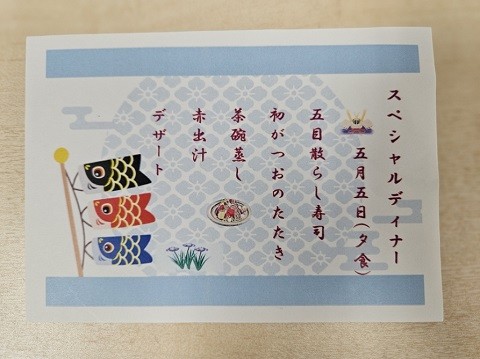 スペシャルディナー
五月五日(夕食)
五目散らし寿司
初がつおのたたき
茶碗蒸し
赤出汁
デザート